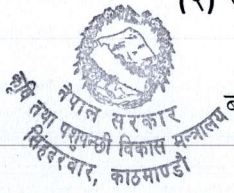 (२)
नेपाल सरकार
कृषि तथा पशुपन्छी विकास मन्त्रालय
सिंहदरबार, काठमाण्डौ
ब